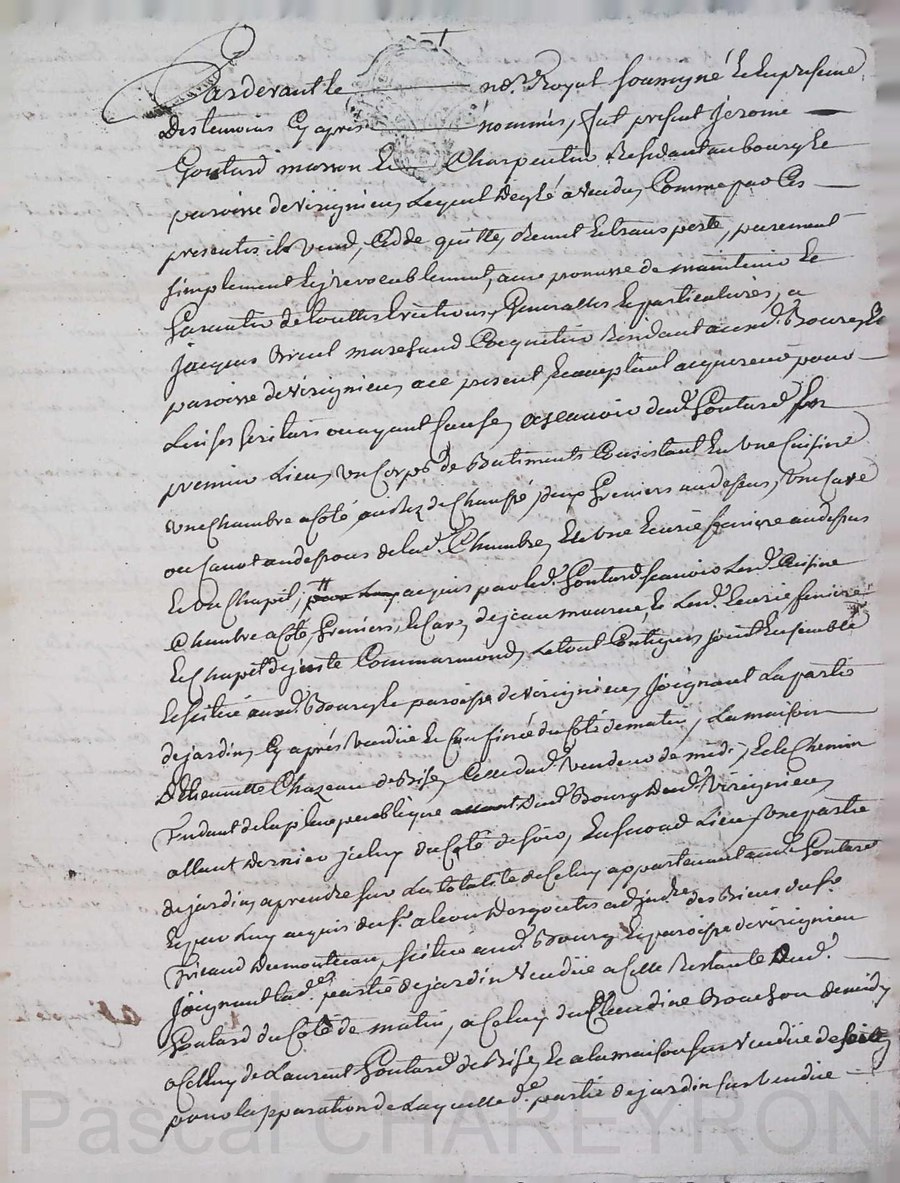 Pardevant le no.re Royal soussigné Et En presence
Des temoins Cy aprés nommés, fut present Jerome
Goutard masson Et Charpentier Residant au bourg Et
paroisse de virignieu, Lequel De gré a vendu, Comme par Ces
presentes il vend, Cedde quitte, Remet Et transporte, purement
simplement Et irrevocablement, avec promesse de maintenir Et
Garantir de touttes Evictions, Generalles Et particulieres, a
Jacques marchand Residant aud. Bourg Et
paroisse de virignieu, a ce present Et acceptant acquereur pour
Lui ses heritiers ou ayant Cause, a sçavoir dud. Goutard En
premier Lieu, un Corps de Batiments Consistant En une Cuisine
une Chambre a Coté, au rez de Chaussé, deux Greniers au dessus, une Cave
ou Cavot au dessous de lad. Chambre, Et une Ecurie feniere au dessus
Et un Chapit, acquis par led. Goutard scavoir Lesd. Cuisine
Chambre a Coté, Greniers, Et Cave, de jean Et Lesd. Ecurie feniere
Et Chapit de Commarmond, Le tout Contigus joint Ensemble
Et scitué aud. Bourg Et paroisse de virignieu, Joignant La partie
de jardin, Cy aprés Vendüe Et Confinée du Coté de matin, La maison
D'Etiennette Chazeau de Bise, Celle dud. Vendeur de midi, Et le Chemin
Tendant de la place publique Dud. Bourg Dud. Virignieu,
allant Dernier jceluy du Coté de soir, En second Lieu, une partie
de jardin, a prendre sur La totalité de Celuy appartenant aud. Goutard
Et par Luy acquis du S.r des Biens du S.r
scitué aud. Bourg Et paroisse de virignieu
Joignant lad. partie de jardin Vendüe a Celle Restante Aud.
Goutard du Coté de matin, a Celuy de Claudine Bouchon de midy
a Celluy de Laurent Goutard de Bise, Et a la maison sus Vendüe de soir,
pour la separation de Laquelle d.e partie de jardin sus Vendüe
Pascal CHAREYRON